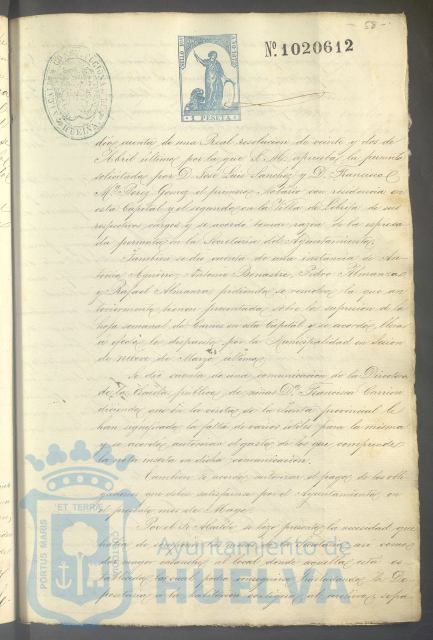 58
Nº 1020612
1 PESETA
HUELVA
dióse cuenta de una Real resolucion de veinte y dos de
Abril último por la que S. M. aprueba la permuta
solicitada por D. José Luis Sanchez y D. Francisco
Mª Perez Gomez el primero Notario con residencia en
esta Capital y el segundo en la Villa de Lebrija de sus
respectivos cargos y se acordó tomar razon de la espresa
da permuta en la Secretaria del Ayuntamiento.
Tambien se dio cuenta de una instancia de An
tonio Aguirre, Antonio Benastre, Pedro Almanzas
y Rafael Almanza pidiendo se resuelva la que an
teriormente tienen presentada sobre la supresion de la
hoja semanal de Carnes en esta Capital y se acordó llevar
a efecto lo dispuesto por la Municipalidad en sesion
de nueve de Marzo último.
Se dio cuenta de una comunicacion de la Directora
de la Escuela publica de niñas Dª Francisca Carrion
diciendo que en la visita de la Junta provincial le
han significado la falta de varios utiles para la misma
y se acordó autorizar el gasto de los que comprende
la nota inserta en dicha comunicacion.
Tambien se acordó autorizar el pago de las obli
gaciones que debe satisfacer por el Ayuntamiento en
el presente mes de Mayo.
Por el Sr. Alcalde se hizo presente la necesidad que
habia de el de la asi como
dar mayor estension al local donde aquella está es
tablecida lo cual podia conseguirse trasladando la De
positaria a la habitacion contigua al archivo, sepa
PORTUS MARIS
ET TERRAE
CUSTODIA
Ayuntamiento de
HUELVA